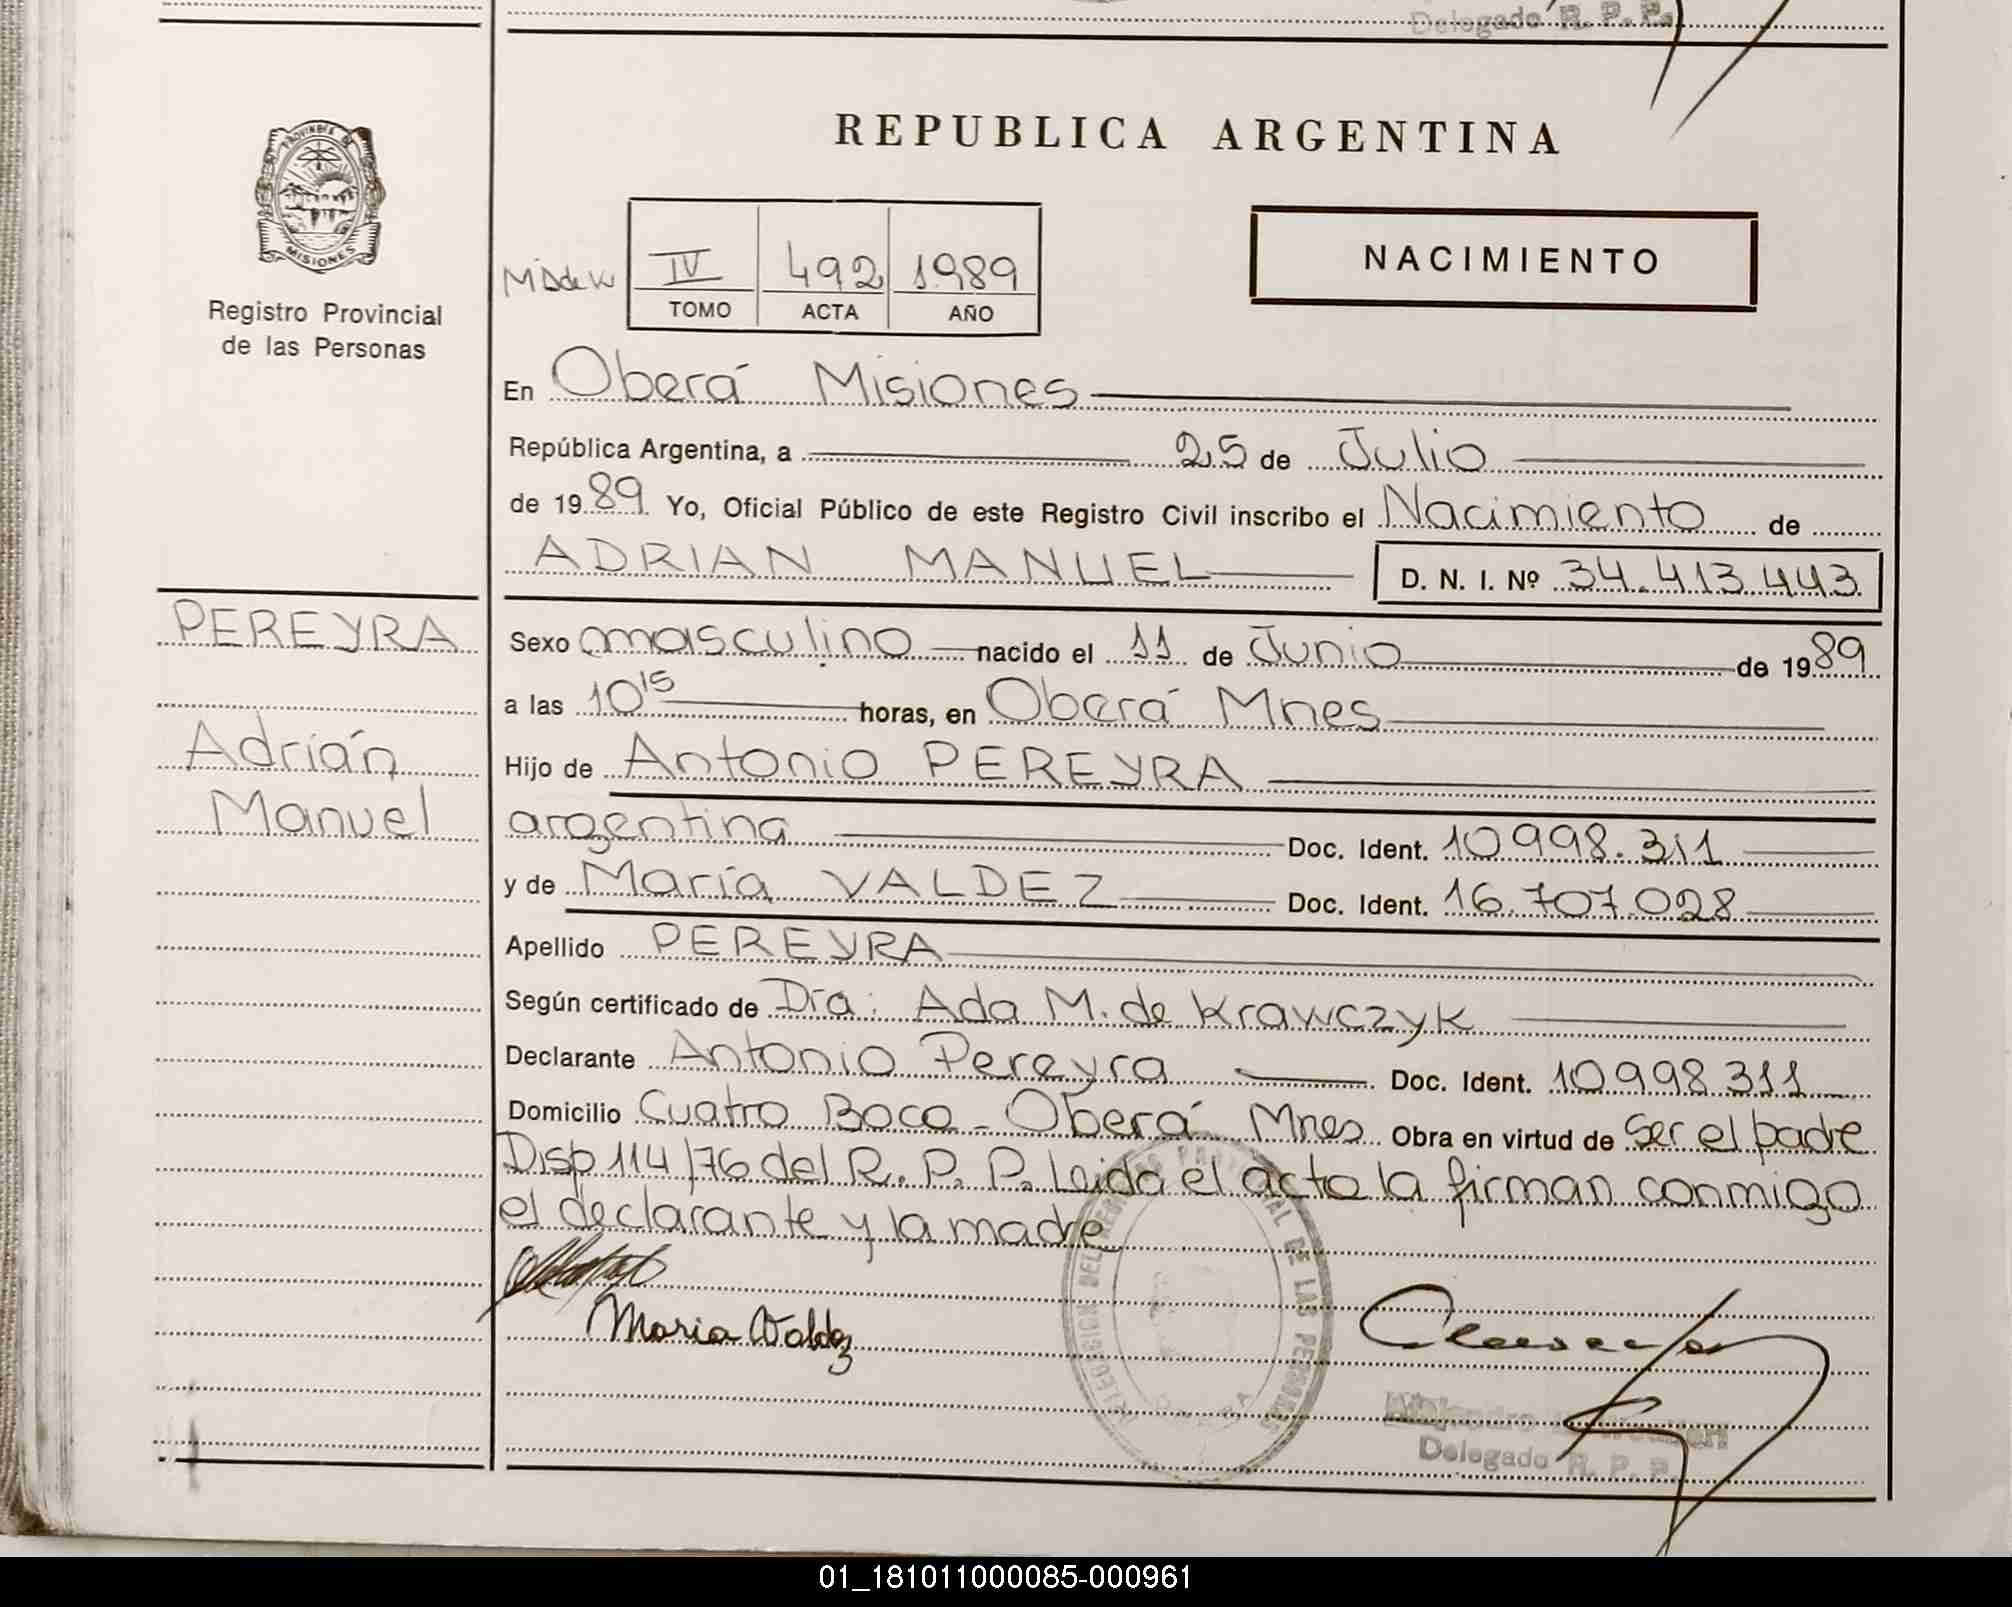 Delegado R. P. P.
PROVINCIA DE
MISIONES
Registro Provincial
de las Personas
REPUBLICA ARGENTINA
IV 492 1.989
TOMO ACTA AÑO
NACIMIENTO
En Oberá Misiones
República Argentina, a 25 de Julio
de 1989. Yo, Oficial Público de este Registro Civil inscribo el Nacimiento de
ADRIAN MANUEL D. N. I. Nº 34.413.443
PEREYRA
Adrián
Manuel
Sexo masculino nacido el 11 de Junio de 1989
a las 10 15 horas, en Oberá Mnes
Hijo de Antonio PEREYRA
argentina Doc. Ident. 10998.311
y de María VALDEZ Doc. Ident. 16.707.028
Apellido PEREYRA
Según certificado de Dra: Ada M. de Krawczyk
Declarante Antonio Pereyra Doc. Ident. 10998311
Domicilio Cuatro Boca - Oberá Mnes Obra en virtud de Ser el padre
Disp 114/76 del R. P. P. Leida el acta la firman conmigo
el declarante y la madre
Maria Valdez
DEL REGISTRO PROVINCIAL DE LAS PERSONAS
Alejandro
Delegado R. P. P.
01_181011000085-000961